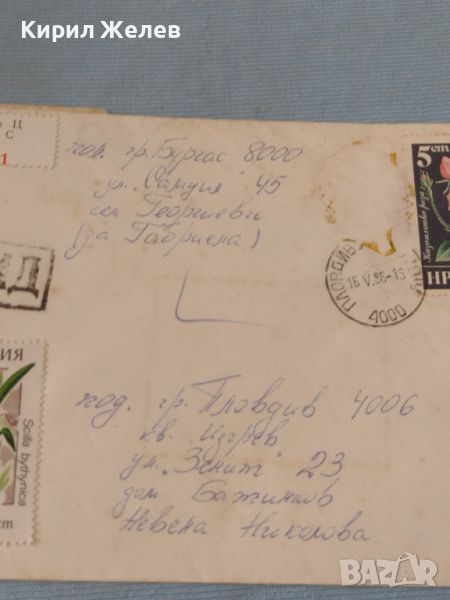 Кирил Желев
Ц
С
1
пол. гр. Бургас 8000
ул. "Самуил" 45
сем. Георгиеви
(за Габриела)
5 ст
НР
ПЛОВДИВ
16 V.86-15
4000
ИЯ
Scilla bythynica
ст
под. гр. Пловдив 4006
кв. Изгрев
ул. "Зенит" 23
дом Бажинков
Невена Николова
BAZAR